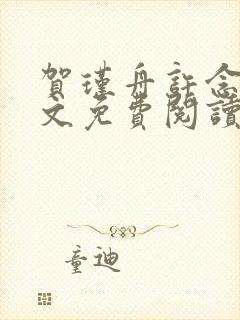 賀瑾舟許念
文免費閱讀
童迪